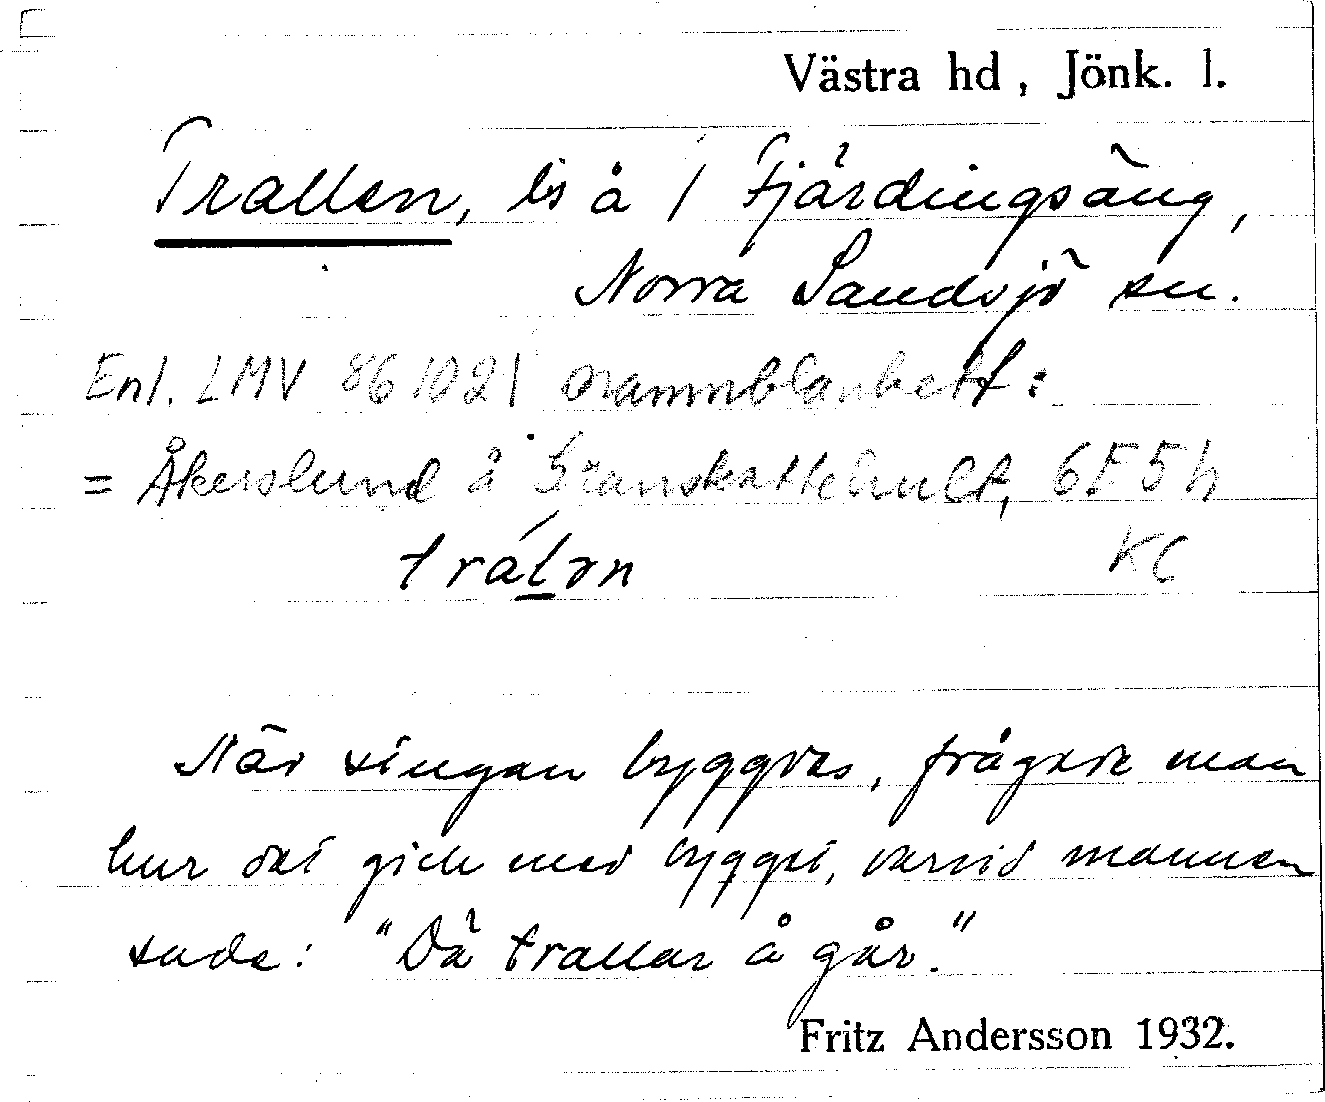 Västra hd, Jönk. l.
Trallen, ls å 1 Fjärdingsäng,
Norra Sandsjö sn.
Enl. LMV 861021 namnblankett:
= Åkerslund å Granskattehult, 6F5h
tralən KC
När stugan byggdes, frågade man
hur det gick med bygget, varvid mannen
sade: "Dä trallar å går."
Fritz Andersson 1932.